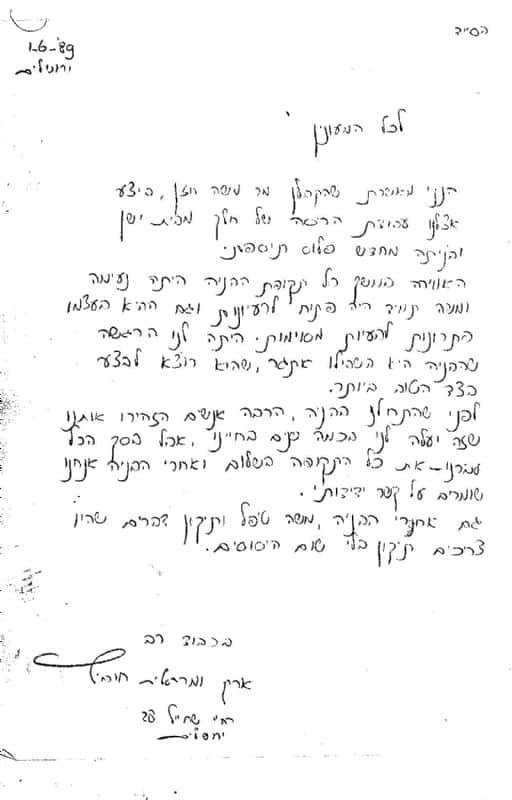 בס״ד
1-6-'89
ירושלים
לכל המעונין
הנני מאשרת שהקבלן מר משה חזן, ביצע
אצלנו עבודת הריסה של חלק מבית ישן
ובנייתה מחדש פלוס תוספת.
האווירה במשך כל תקופת הבניה היתה נעימה
ומשה תמיד היה פתוח לרעיונות וגם הביא מעצמו
פתרונות לבעיות מסוימות. היתה לנו הרגשה
שהבניה היא בשבילו אתגר, שהוא רוצא לבצע
בצד הטוב ביותר.
לפני שהתחלנו הבניה, הרבה אנשים הזהירו אותנו
שזה יעלה לנו בכמה שנים בחיינו, אבל בסך הכל
עברנו את כל התקופה בשלום ואחרי הבניה אנחנו
שומרים על קשר ידידותי.
גם אחרי הבניה, משה טיפל ותיקון דברים שהיו
צריכים תיקון בלי שום היסוסים.
בכבוד רב
28
ירושלים